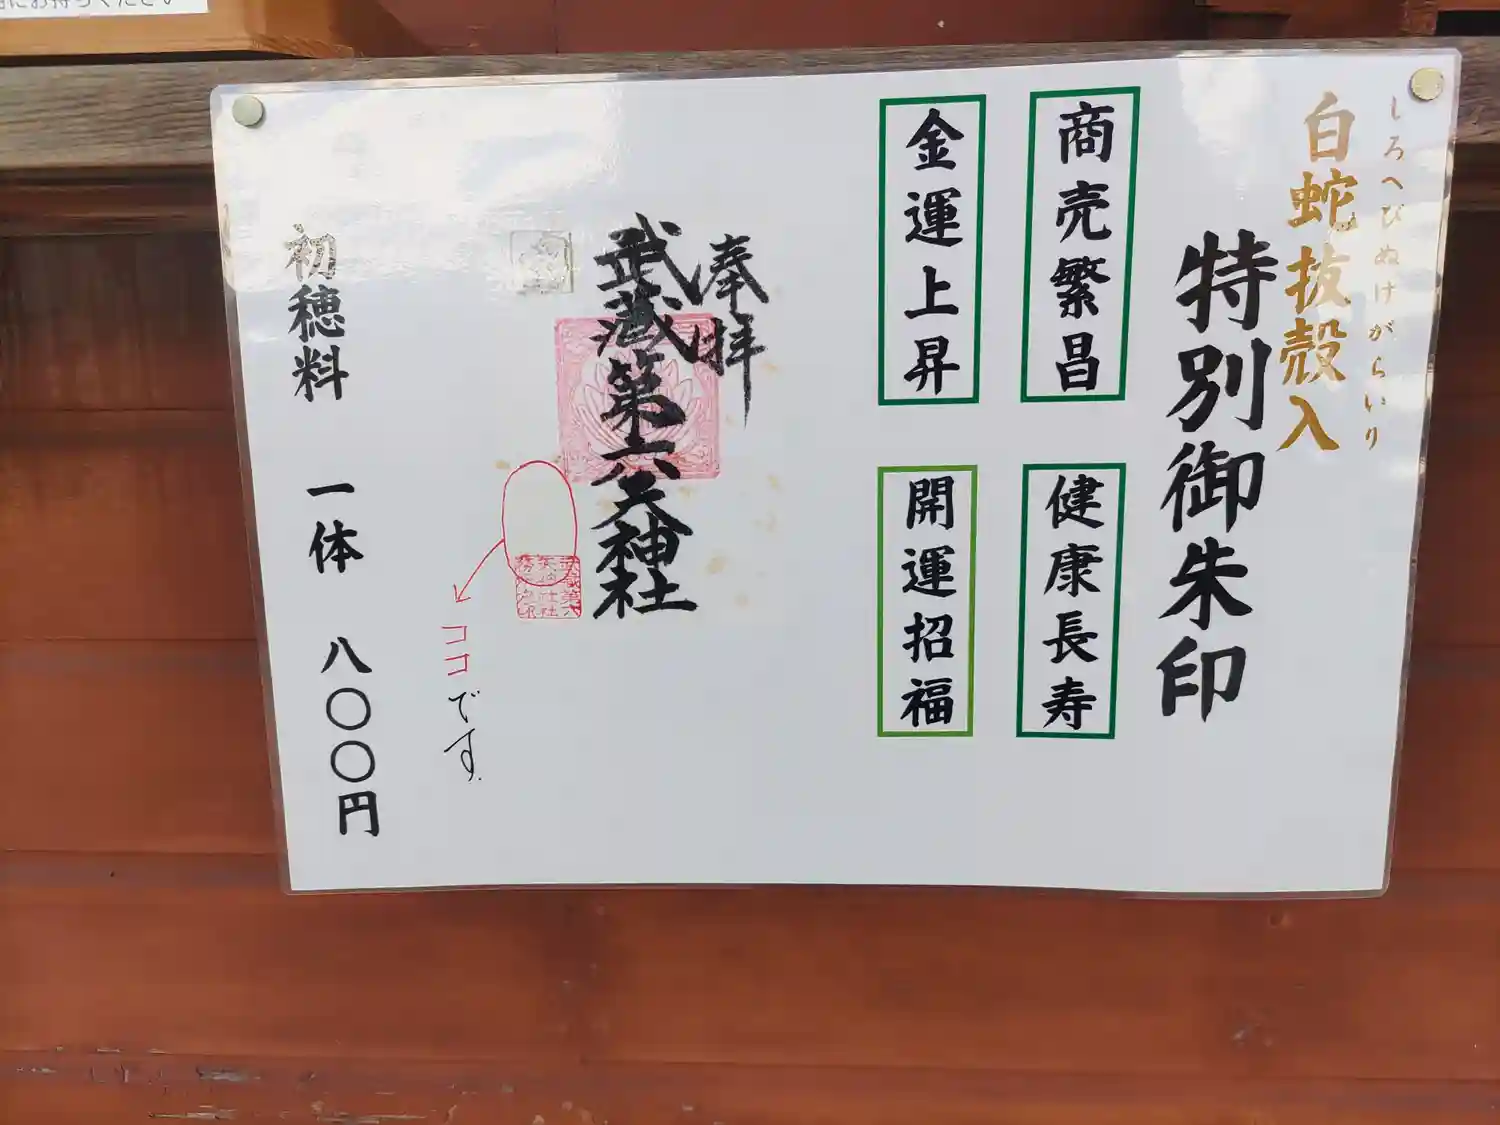 にお持ちください
しろへびぬけがらいり
白蛇抜殻入
特別御朱印
商売繁昌
健康長寿
金運上昇
開運招福
奉拝
武蔵第六天神社
ココです.
初穂料 一体 八〇〇円